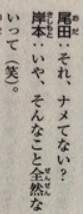 尾田：それ、ナメてない？
岸本：いや、そんなこと全然な
いって（笑）。